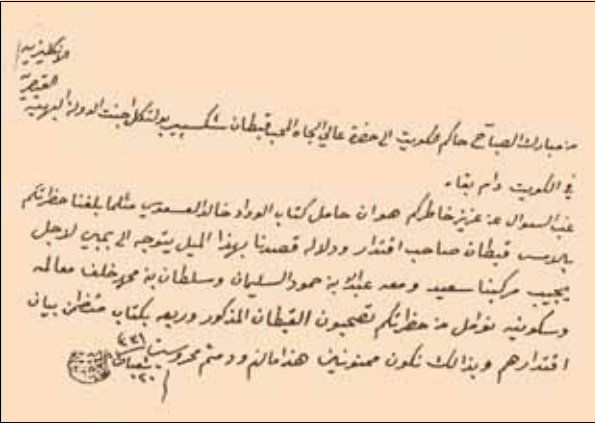 من مبارك الصباح حاكم كويت الى حضرة عالي الجاه المحب قبطان شكسبير بولتكل اجنت الدولة البهية
القيصرية
الانكليزية
في الكويت دام بقاه
غب السوال عن عزيز خاطركم هو ان حامل كتاب الوداد خالد العسعوسي مثلما بلغنا حظرتكم
بالامس قبطان صاحب اقتدار ودلالة قصدنا بهذا الميل يتوجه الى بمبي لاجل
يجيب مركبنا سعيد ومعه عبدالله بن حمود السليمان وسلطان بن محمد خلف معالمه
وسكونيه نؤمل من حظرتكم تصحبون القبطان المذكور وربعه بكتاب متظمن بيان
اقتدارهم وبذالك نكون ممنونين هذا مالزم ودمتم محروسين
شعبان